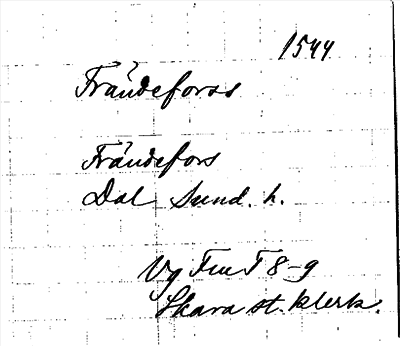 1544
Frändeforss
Frändefors
Dal Sund. h.
Vg Fru T 8-9
Skara st. klerk.